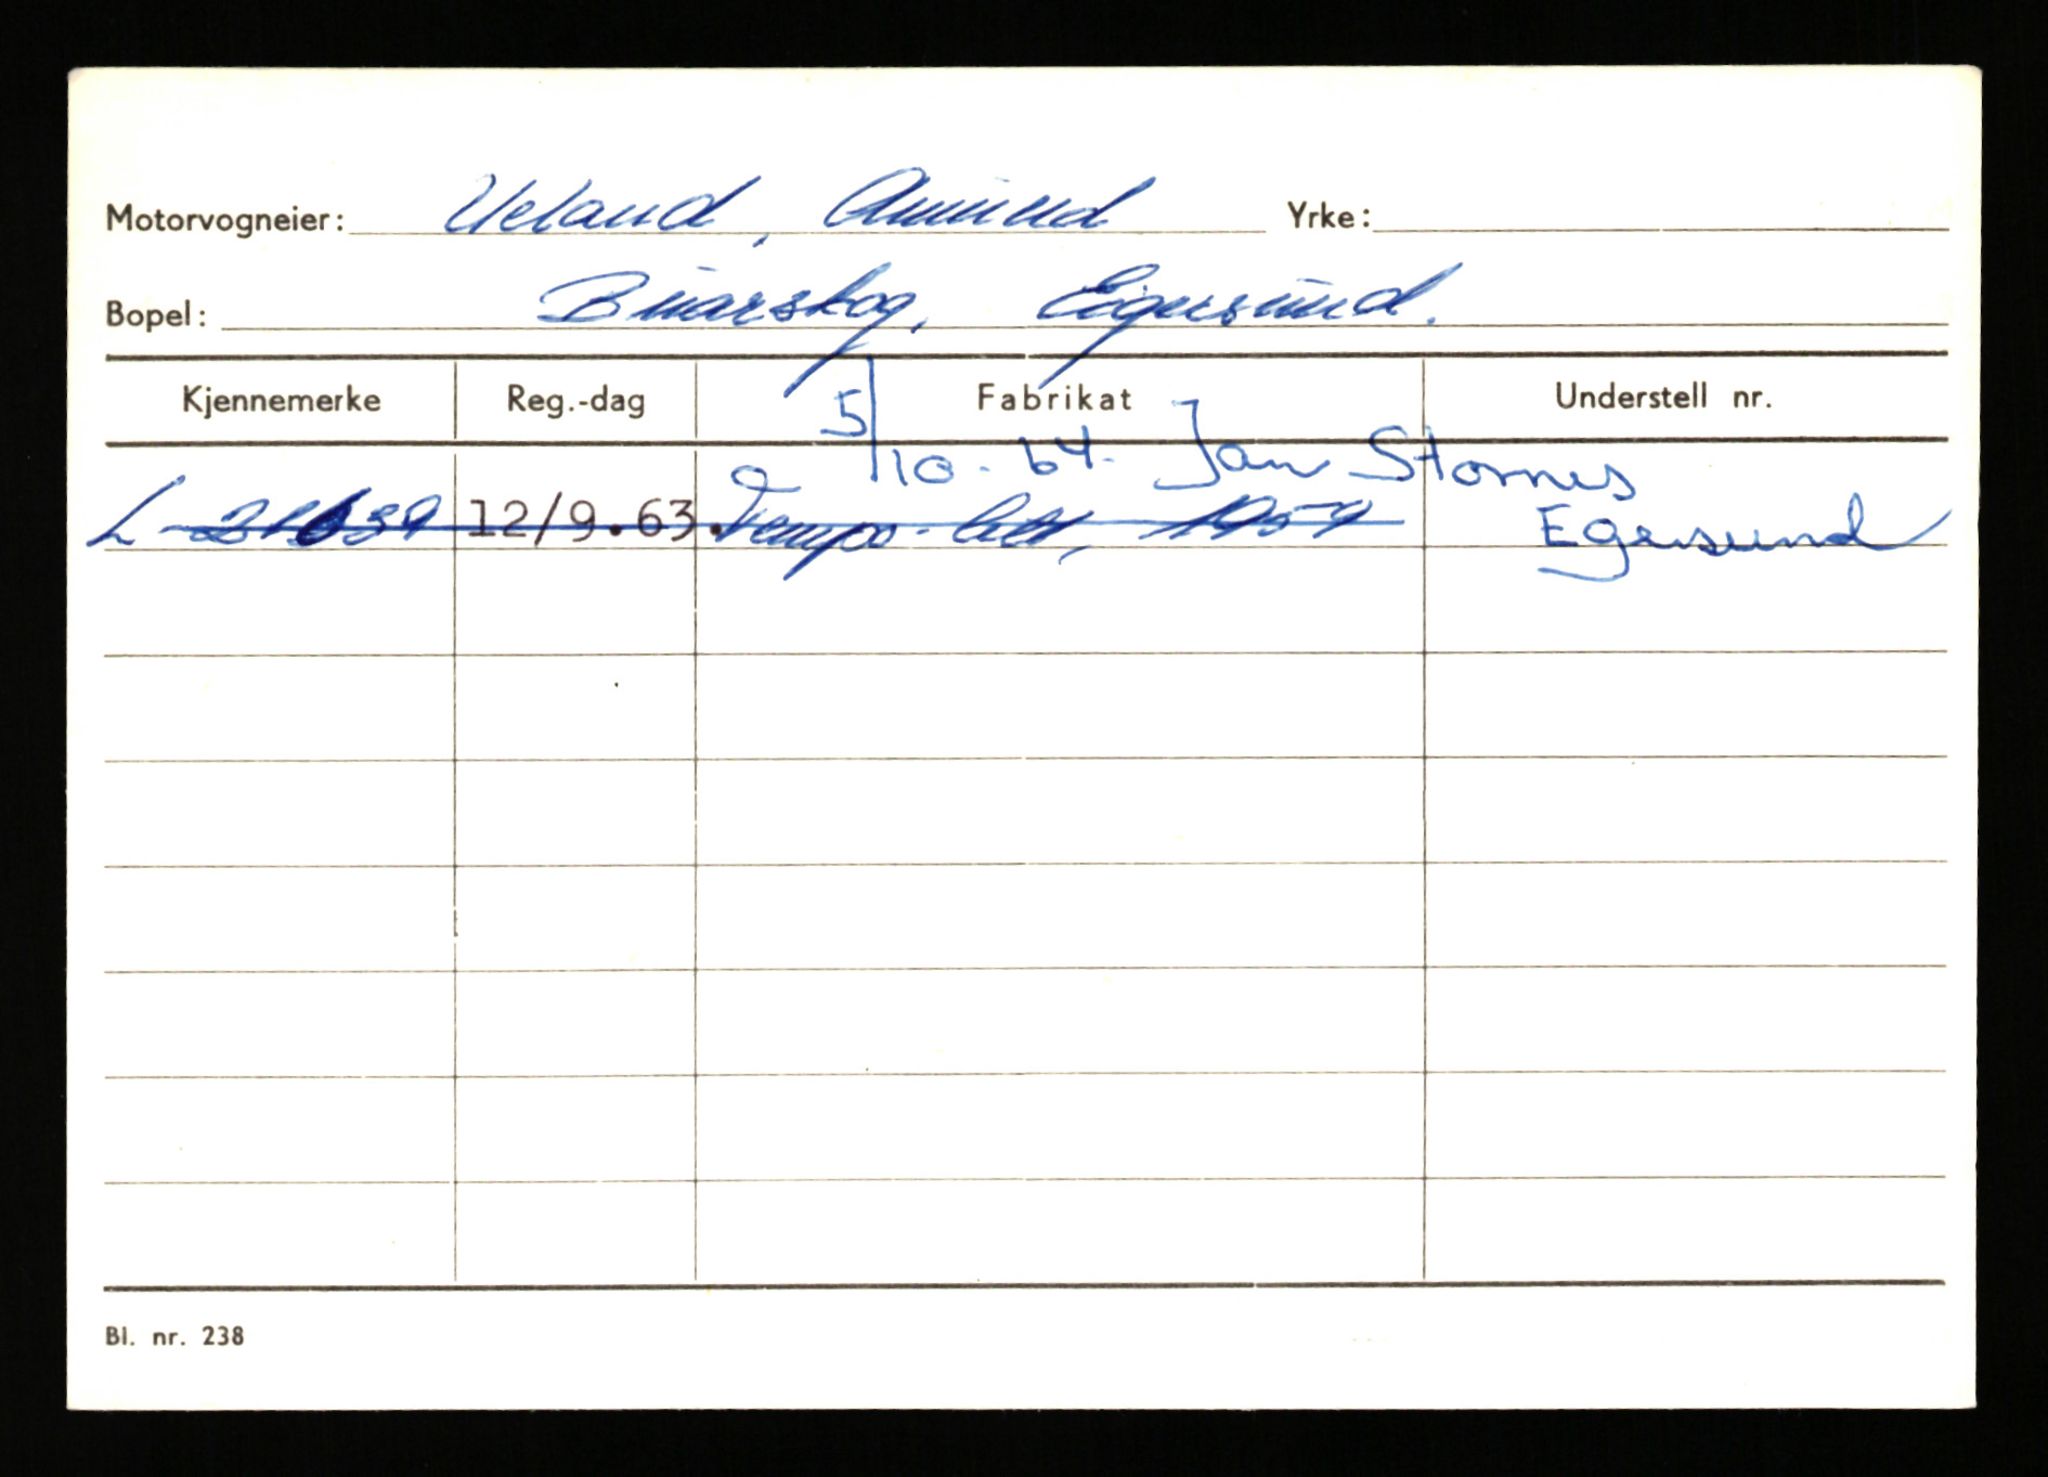 Motorvogneier: Ueland, Amund Yrke:
Bopel: Buarskog, Eigersund.
Kjennemerke Reg.-dag Fabrikat Understell nr.
5/10-64. Jan Stornes
Egersund
L- 12/9.63. Tempo-lett, 1959
Bl. nr. 238